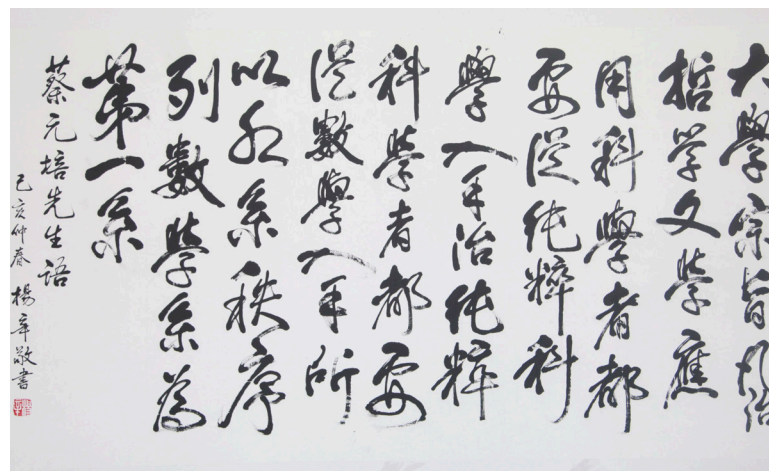 大學宗旨凡治
哲学文学應
用科學者都
要從纯粹科
學入手治纯粹
科學者都要
從數學入手所
以系秩序
列數学系為
第一系
蔡元培先生语
己亥仲春楊辛敬書